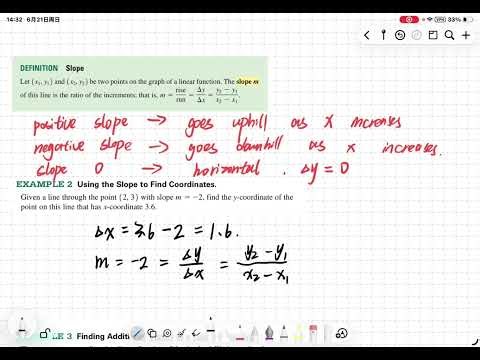 14:32 6月21日周日
33%
DEFINITION Slope
Let (x₁, y₁) and (x₂, y₂) be two points on the graph of a linear function. The slope m
of this line is the ratio of the increments; that is, m = rise/run = Δy/Δx = (y₂ − y₁)/(x₂ − x₁).
positive slope → goes uphill as x increases
negative slope → goes downhill as x increases.
slope 0 → horizontal. Δy = 0
EXAMPLE 2 Using the Slope to Find Coordinates.
Given a line through the point (2, 3) with slope m = −2, find the y-coordinate of the
point on this line that has x-coordinate 3.6.
Δx = 3.6 − 2 = 1.6.
m = −2 = Δy/Δx = (y₂ − y₁)/(x₂ − x₁)
LE 3 Finding Additi